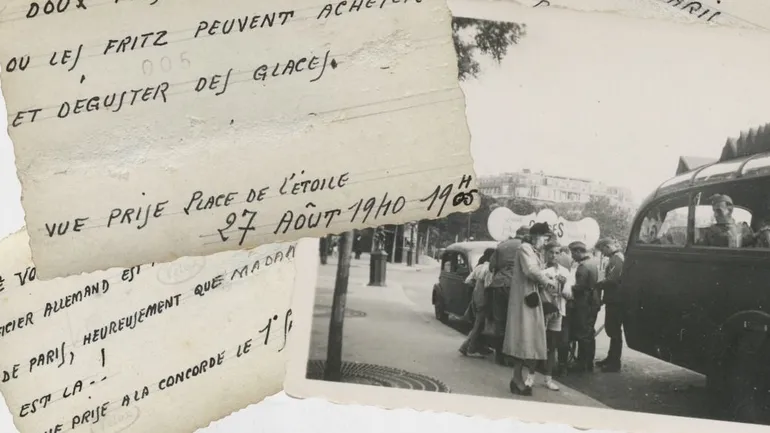 DOUX
OU LES FRITZ PEUVENT ACHETER
005
ET DÉGUSTER DES GLACES.
VUE PRISE PLACE DE L'ÉTOILE
27 AOÛT 1940 - 19H05
ALLEMAND EST
DE PARIS, HEUREUSEMENT QUE MADAM
EST LA - - !
PRISE A LA CONCORDE LE 1°